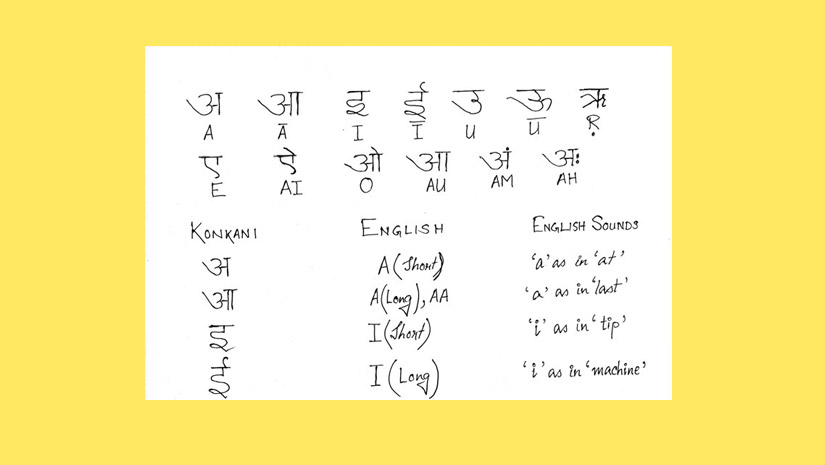 अ आ इ ई उ ऊ ऋ
A Ā I Ī U Ū Ṛ
ए ऐ ओ आ अं अः
E AI O AU AM AH
KONKANI ENGLISH ENGLISH SOUNDS
अ A (Short) 'a' as in 'at'
आ A (Long), AA 'a' as in 'last'
इ I (Short) 'i' as in 'tip'
ई I (Long) 'i' as in 'machine'